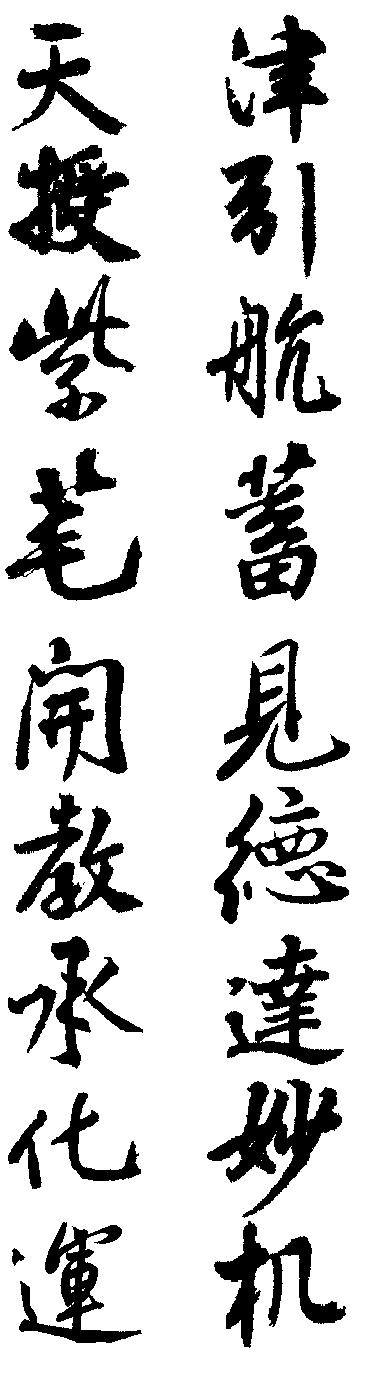 津引航蓄見德達妙机
天授紫笔開教承化運